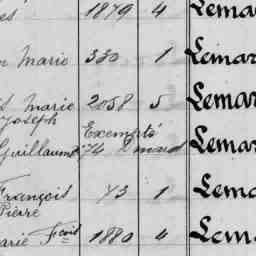 es 1879 4 Lemar
n Marie 330 1 Lemar
s Marie 2058 5 Lemar
Joseph Exempté
Guillaume 74 Lemar
François 73 1 Lema
Pierre
arie Fcois 1880 4 Lema